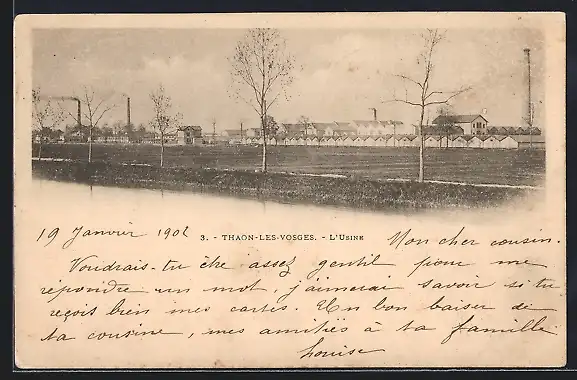 19 Janvier 1902
3. - THAON-LES-VOSGES. - L'Usine
Mon cher cousin.
Voudrais-tu être assez gentil pour me
répondre un mot, j'aimerai savoir si tu
reçois bien mes cartes. Un bon baiser de
ta cousine, mes amitiés à ta famille
Louise